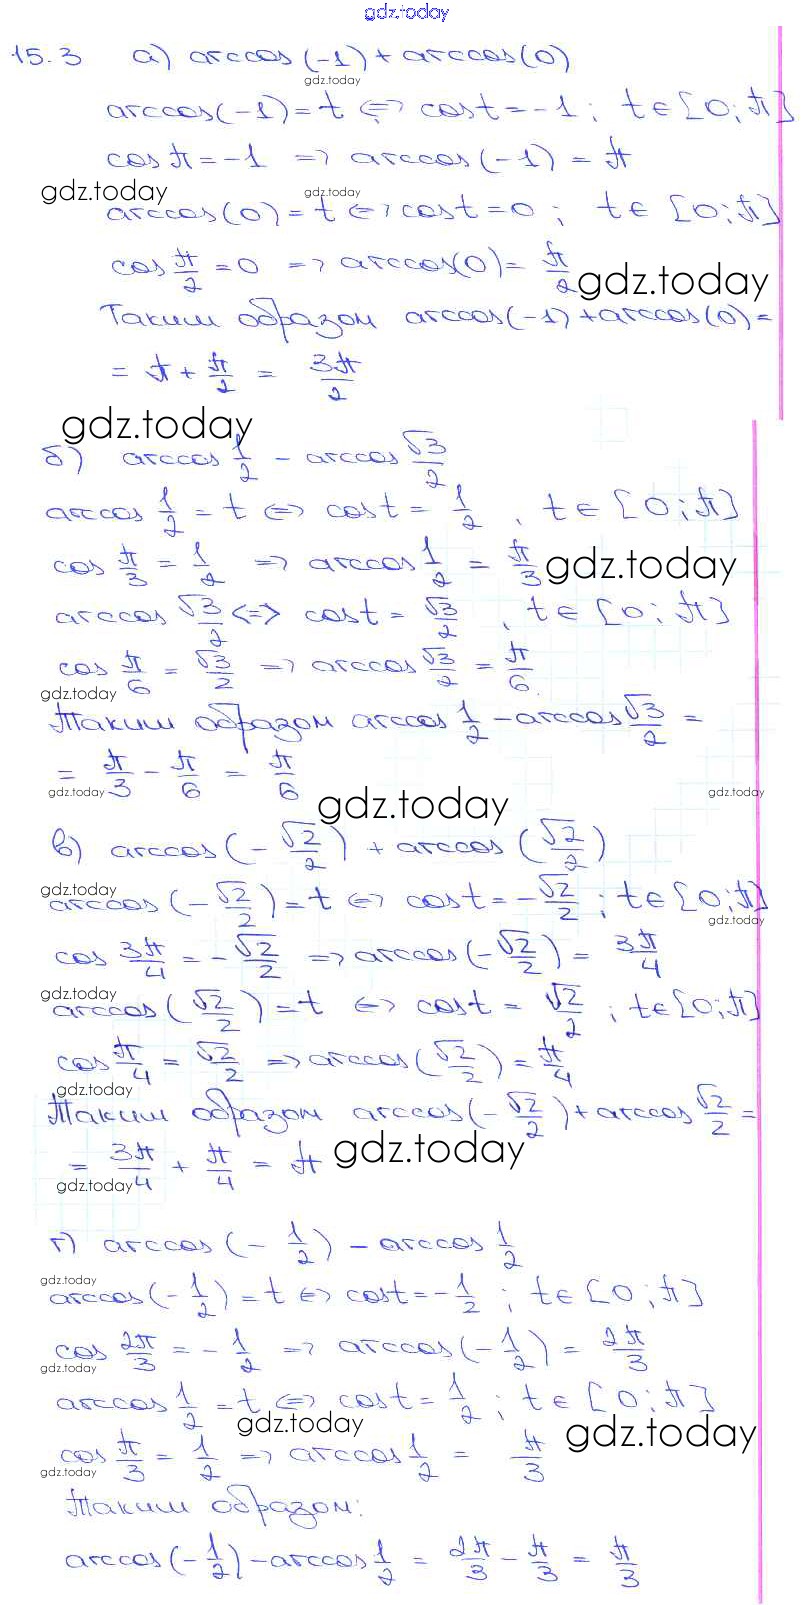 gdz.today
15.3 а) arccos(-1)+arccos(0)
gdz.today
arccos(-1)=t <=> cost=-1; t∈[0;π]
cosπ=-1 => arccos(-1)=π
gdz.today gdz.today
arccos(0)=t <=> cost=0; t∈[0;π]
cos π/2 =0 => arccos(0)= π/2
gdz.today
Таким образом arccos(-1)+arccos(0)=
= π + π/2 = 3π/2
gdz.today
б) arccos 1/2 - arccos √3/2
arccos 1/2 = t <=> cost= 1/2, t∈[0;π]
cos π/3 = 1/2 => arccos 1/2 = π/3
gdz.today
arccos √3/2 <=> cost= √3/2, t∈[0;π]
cos π/6 = √3/2 => arccos √3/2 = π/6.
gdz.today
Таким образом arccos 1/2 - arccos √3/2 =
= π/3 - π/6 = π/6
gdz.today gdz.today gdz.today
в) arccos(-√2/2) + arccos(√2/2)
gdz.today
arccos(-√2/2)=t <=> cost=-√2/2; t∈[0;π]
gdz.today
cos 3π/4 = -√2/2 => arccos(-√2/2)= 3π/4
gdz.today
arccos(√2/2)=t <=> cost= √2/2; t∈[0;π]
cos π/4 = √2/2 => arccos(√2/2)= π/4
gdz.today
Таким образом arccos(-√2/2)+arccos √2/2 =
= 3π/4 + π/4 = π
gdz.today gdz.today
г) arccos(-1/2) - arccos 1/2
gdz.today
arccos(-1/2)=t <=> cost=-1/2; t∈[0;π]
cos 2π/3 = -1/2 => arccos(-1/2)= 2π/3
gdz.today
arccos 1/2 =t <=> cost= 1/2; t∈[0;π]
gdz.today gdz.today
cos π/3 = 1/2 => arccos 1/2 = π/3
gdz.today
Таким образом:
arccos(-1/2)-arccos 1/2 = 2π/3 - π/3 = π/3